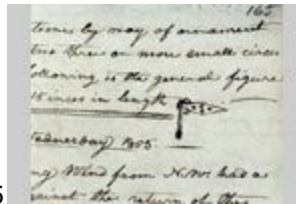 165
times by way of ornament
two three or more small circu
ollowing is the general figure
15 inces in length
Wednesday 1805.
Wind from N.W. had a
against the return of the